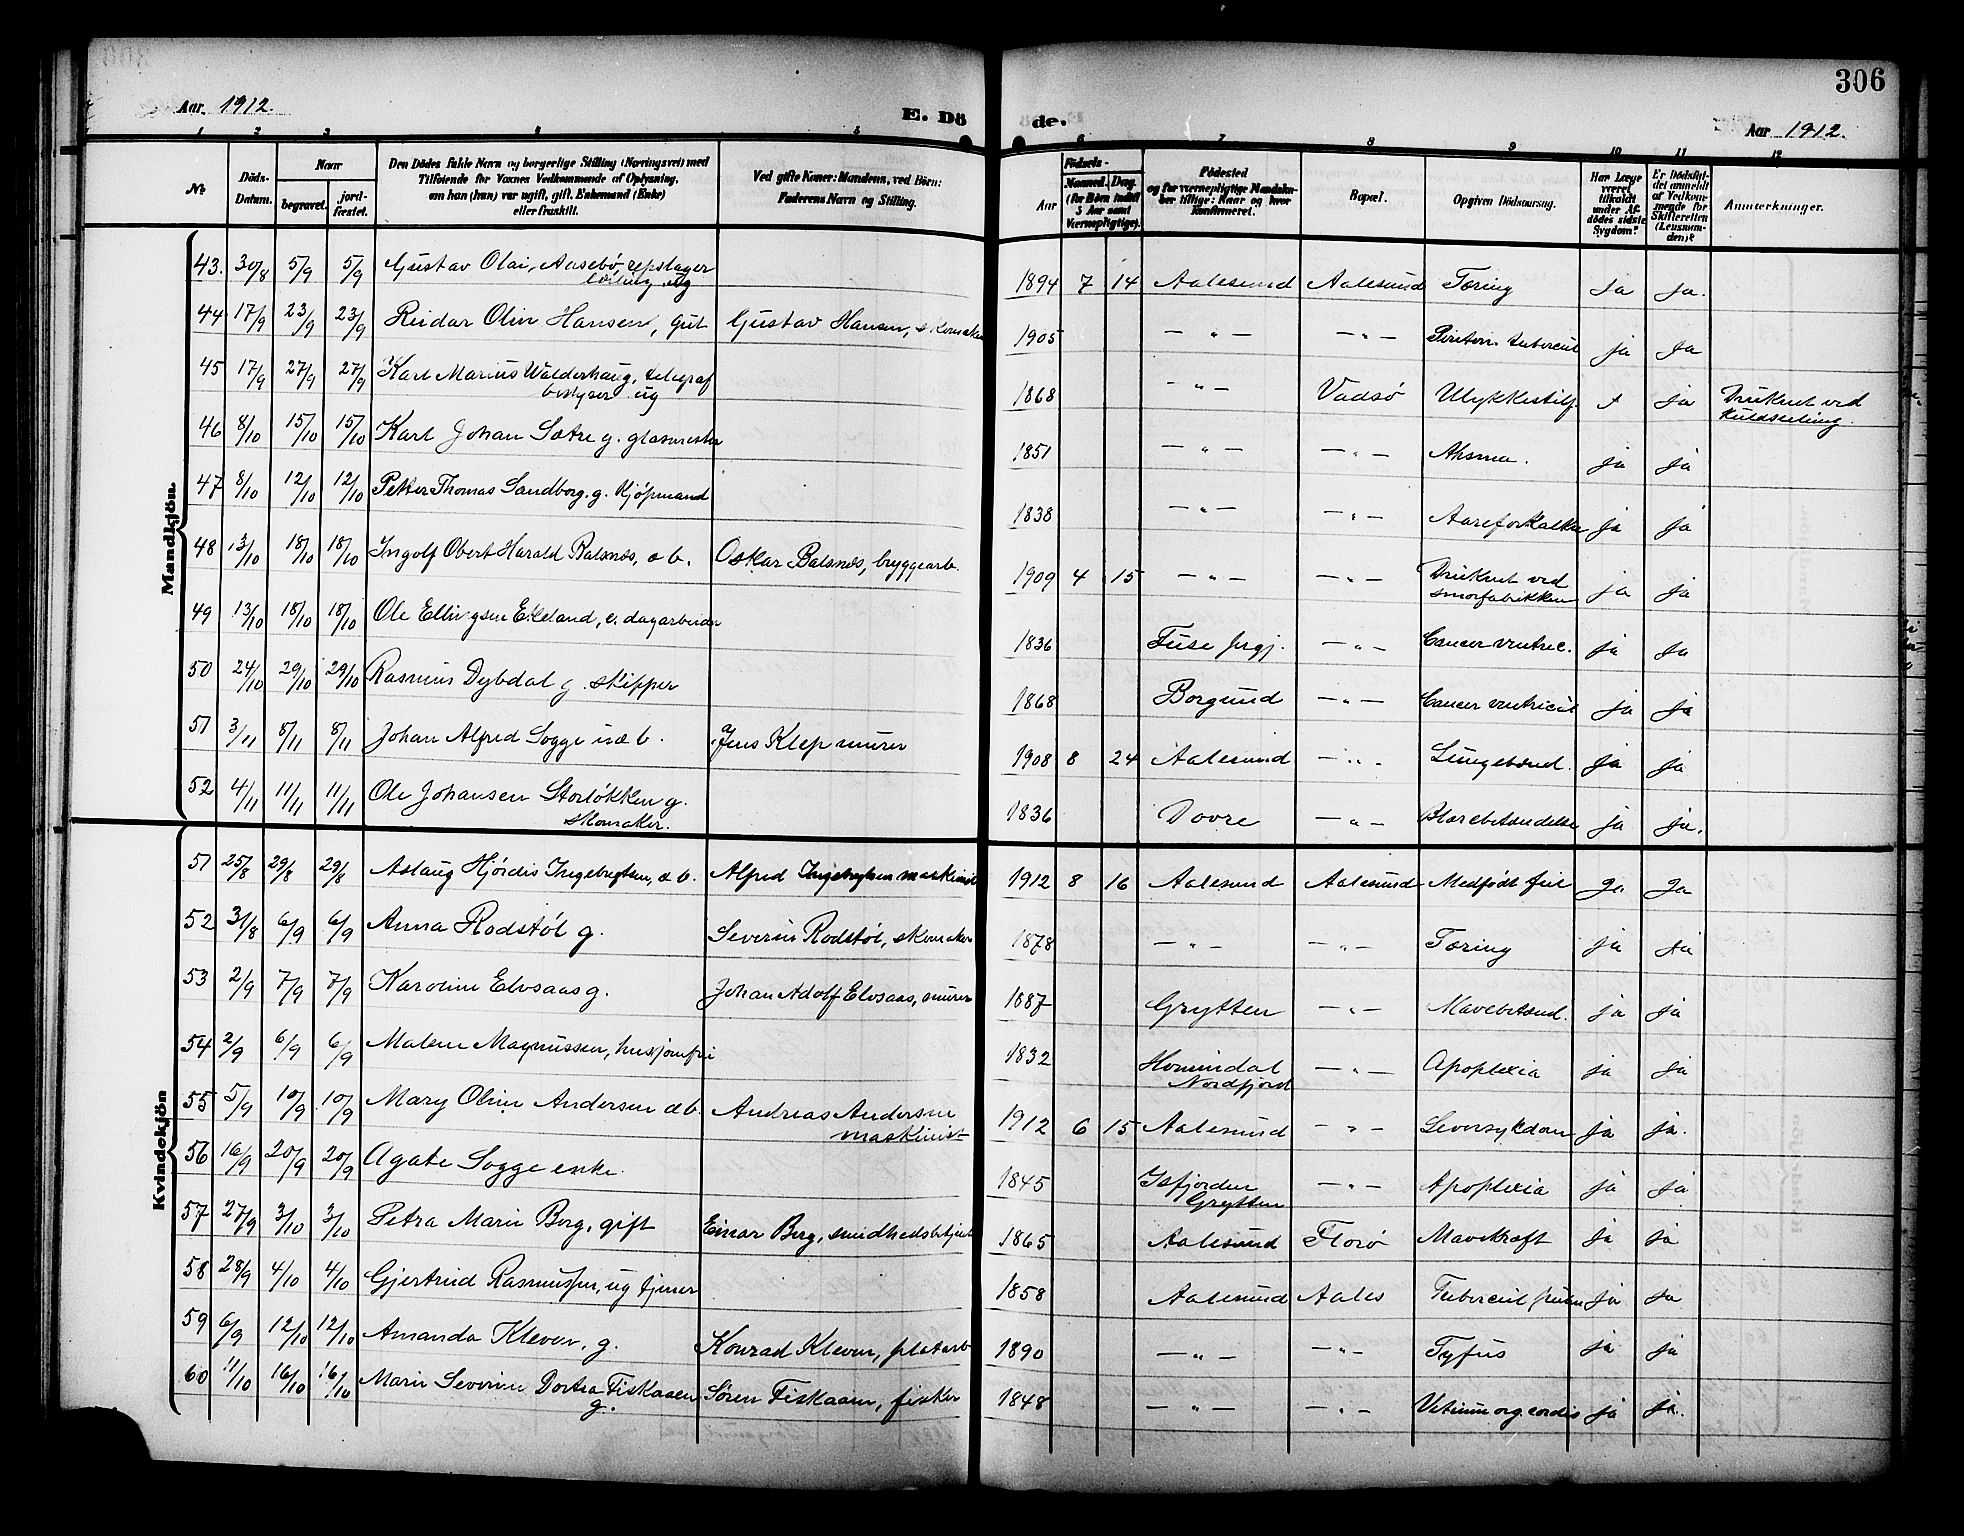 306
Aar 1912.
E. Dö
de.
Aar 1912.
1 2 3 4 5 6 7 8 9 10 11 12
№
Döds-Datum.
Naar
begravet.
jord-fæstet.
Den Dödes fulde Navn og borgerlige Stilling (Næringsvei) med
Tilföiende for Voxnes Vedkommende af Oplysning,
om han (hun) var ugift, gift, Enkemand (Enke)
eller fraskilt.
Ved gifte Koner: Mandens, ved Börn:
Faderens Navn og Stilling.
Födsels-
Aar
Maaned. Dag.
(for Börn indtil
5 Aar samt
Værnepligtige).
Födested
og for værnepligtige Mandskaber tillige: Naar og hvor Konfirmeret.
Bopæl.
Opgiven Dödsaarsag.
Har Læge været tilkaldt under Afdödes sidste Sygdom?
Er Dödsfaldet anmeldt af Vedkommende for Skifteretten (Lensmanden)?
Anmærkninger.
Mandkjön.
43. 30/8 5/9 5/9 Gustav Olai Aasebö, repslager lærling, ug 1894 7 14 Aalesund Aalesund Tæring Ja Ja.
44 17/9 23/9 23/9 Reidar Olin Hansen, gut Gustav Hansen, skomaker 1905 — " — — " — Periton. tubercul ja Ja
45 17/9 27/9 27/9 Karl Marius Walderhaug, telegraf bestyrer ug 1868 — " — Vadsö Ulykkestilf. Ja Druknet ved Kuldseiling.
46 8/10 15/10 15/10 Karl Johan Sætre g. glasmester 1851 — " — — " — Ahsma. ja ja
47 8/10 12/10 12/10 Petter Thomas Sandborg. g. Kjöpmand 1838 — " — — " — Aareforkalkn ja ja
48 13/10 18/10 18/10 Ingolf Obert Harald Balsnes, æ b. Oskar Balsnes, bryggearb. 1909 4 15 — " — — " — Druknet ved smörfabrikken ja ja
49 13/10 18/10 18/10 Ole Ellingsen Eikeland, e. dagarbeider 1836 Fuse prgj. — " — Cancer ventric. ja Ja
50 24/10 29/10 29/10 Rasmus Dybdal g. skipper 1868 Borgund — " — Cancer ventricul ja ja
51 3/11 8/11 8/11 Johan Alfred Sogge uæ b. Jens Klep murer 1908 8 24 Aalesund — " — Lungebetænd. ja ja
52 4/11 11/11 11/11 Ole Johansen Storlökken g. skomaker. 1836 Dovre — " — Blærebetændelse ja ja.
Kvindekjön
51 25/8 29/8 29/8 Aslaug Hjördis Ingebrigtsen, æ b. Alfred Ingebrigtsen maskinist 1912 8 16 Aalesund Aalesund Medfödt feil Ja Ja
52 31/8 6/9 6/9 Anna Rodstöl g. Severin Rodstöl, skomaker 1878 — " — — " — Tæring ja ja
53 2/9 7/9 7/9 Karoline Elvsaas g. Johan Adolf Elvsaas, murer 1887 Grytten — " — Mavebetænd. ja ja
54 2/9 6/9 6/9 Malene Magnussen, husjomfru 1832 Hornindal Nordfjord — " — Apoplexia ja ja
55 5/9 10/9 10/9 Mary Oline Andersen æ b. Andreas Andersen maskinist 1912 6 15 Aalesund — " — Leversykdom ja ja.
56 16/9 20/9 20/9 Agate Sogge enke. 1845 Isfjorden Grytten — " — Apoplexia ja ja
57 27/9 3/10 3/10 Petra Marie Berg, gift Einar Berg, sundhedsbetjent 1865 Aalesund Florö Mavekræft Ja ja
58 28/9 4/10 4/10 Gjertrud Rasmussen, ug tjener 1858 Aalesund Aales Tubercul pulm Ja ja
59 6/9 12/10 12/10 Amanda Kleven, g. Konrad Kleven, platarb 1890 — " — — " — Tyfus ja ja
60 11/10 16/10 16/10 Marie Severine Dortea Fiskaaen g. Sören Fiskaaen, fisker 1848 — " — — " — Vitium org. cordis ja ja.